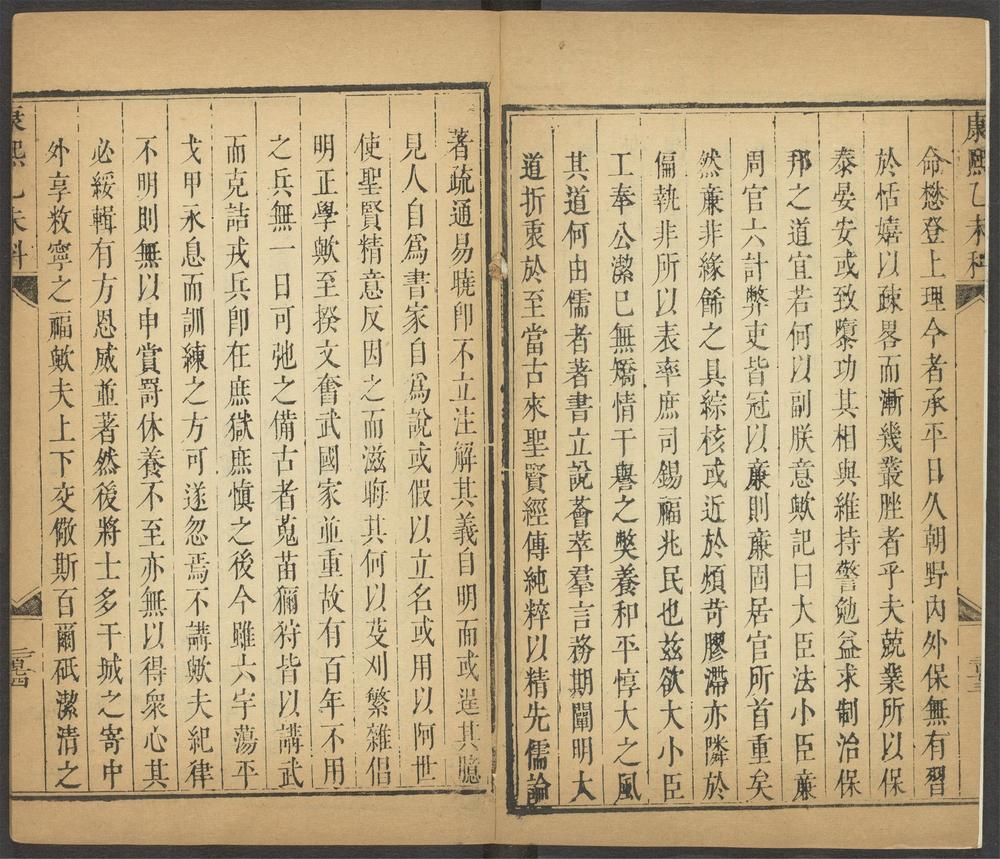 康熙乙未科
命懋登上理今者承平日久朝野內外保無有習
於恬嬉以疎畧而漸幾叢脞者乎夫兢業所以保
泰晏安或致隳功其相與維持警勉益求制治保
邦之道宜若何以副朕意歟記曰大臣法小臣亷
周官六計弊吏皆冠以亷則亷固居官所首重矣
然亷非緣餙之具綜核或近於煩苛膠滯亦隣於
偏執非所以表率庶司錫福兆民也茲欲大小臣
工奉公潔己無矯情干譽之獘養和平惇大之風
其道何由儒者著書立說薈萃羣言務期闡明大
道折衷於至當古來聖賢經傳純粹以精先儒論
著疏通易曉卽不立注解其義自明而或逞其臆
見人自爲書家自爲說或假以立名或用以阿世
使聖賢精意反因之而滋晦其何以芟刈繁雜倡
明正學歟至揆文奮武國家並重故有百年不用
之兵無一日可弛之備古者蒐苗獮狩皆以講武
而克詰戎兵卽在庶獄庶慎之後今雖六宇蕩平
戈甲永息而訓練之方可遂忽焉不講歟夫紀律
不明則無以申賞罸休養不至亦無以得衆心其
必綏輯有方恩威並著然後將士多干城之寄中
外享敉寧之福歟夫上下交儆斯百爾砥潔清之
康熙乙未科